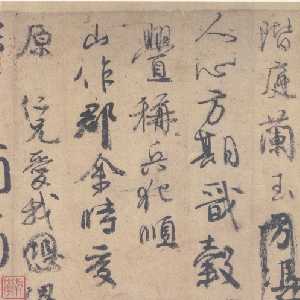 階庭蘭玉
人心方期戩穀
舋稱兵犯順
山作郡余時受
原仁兄愛我